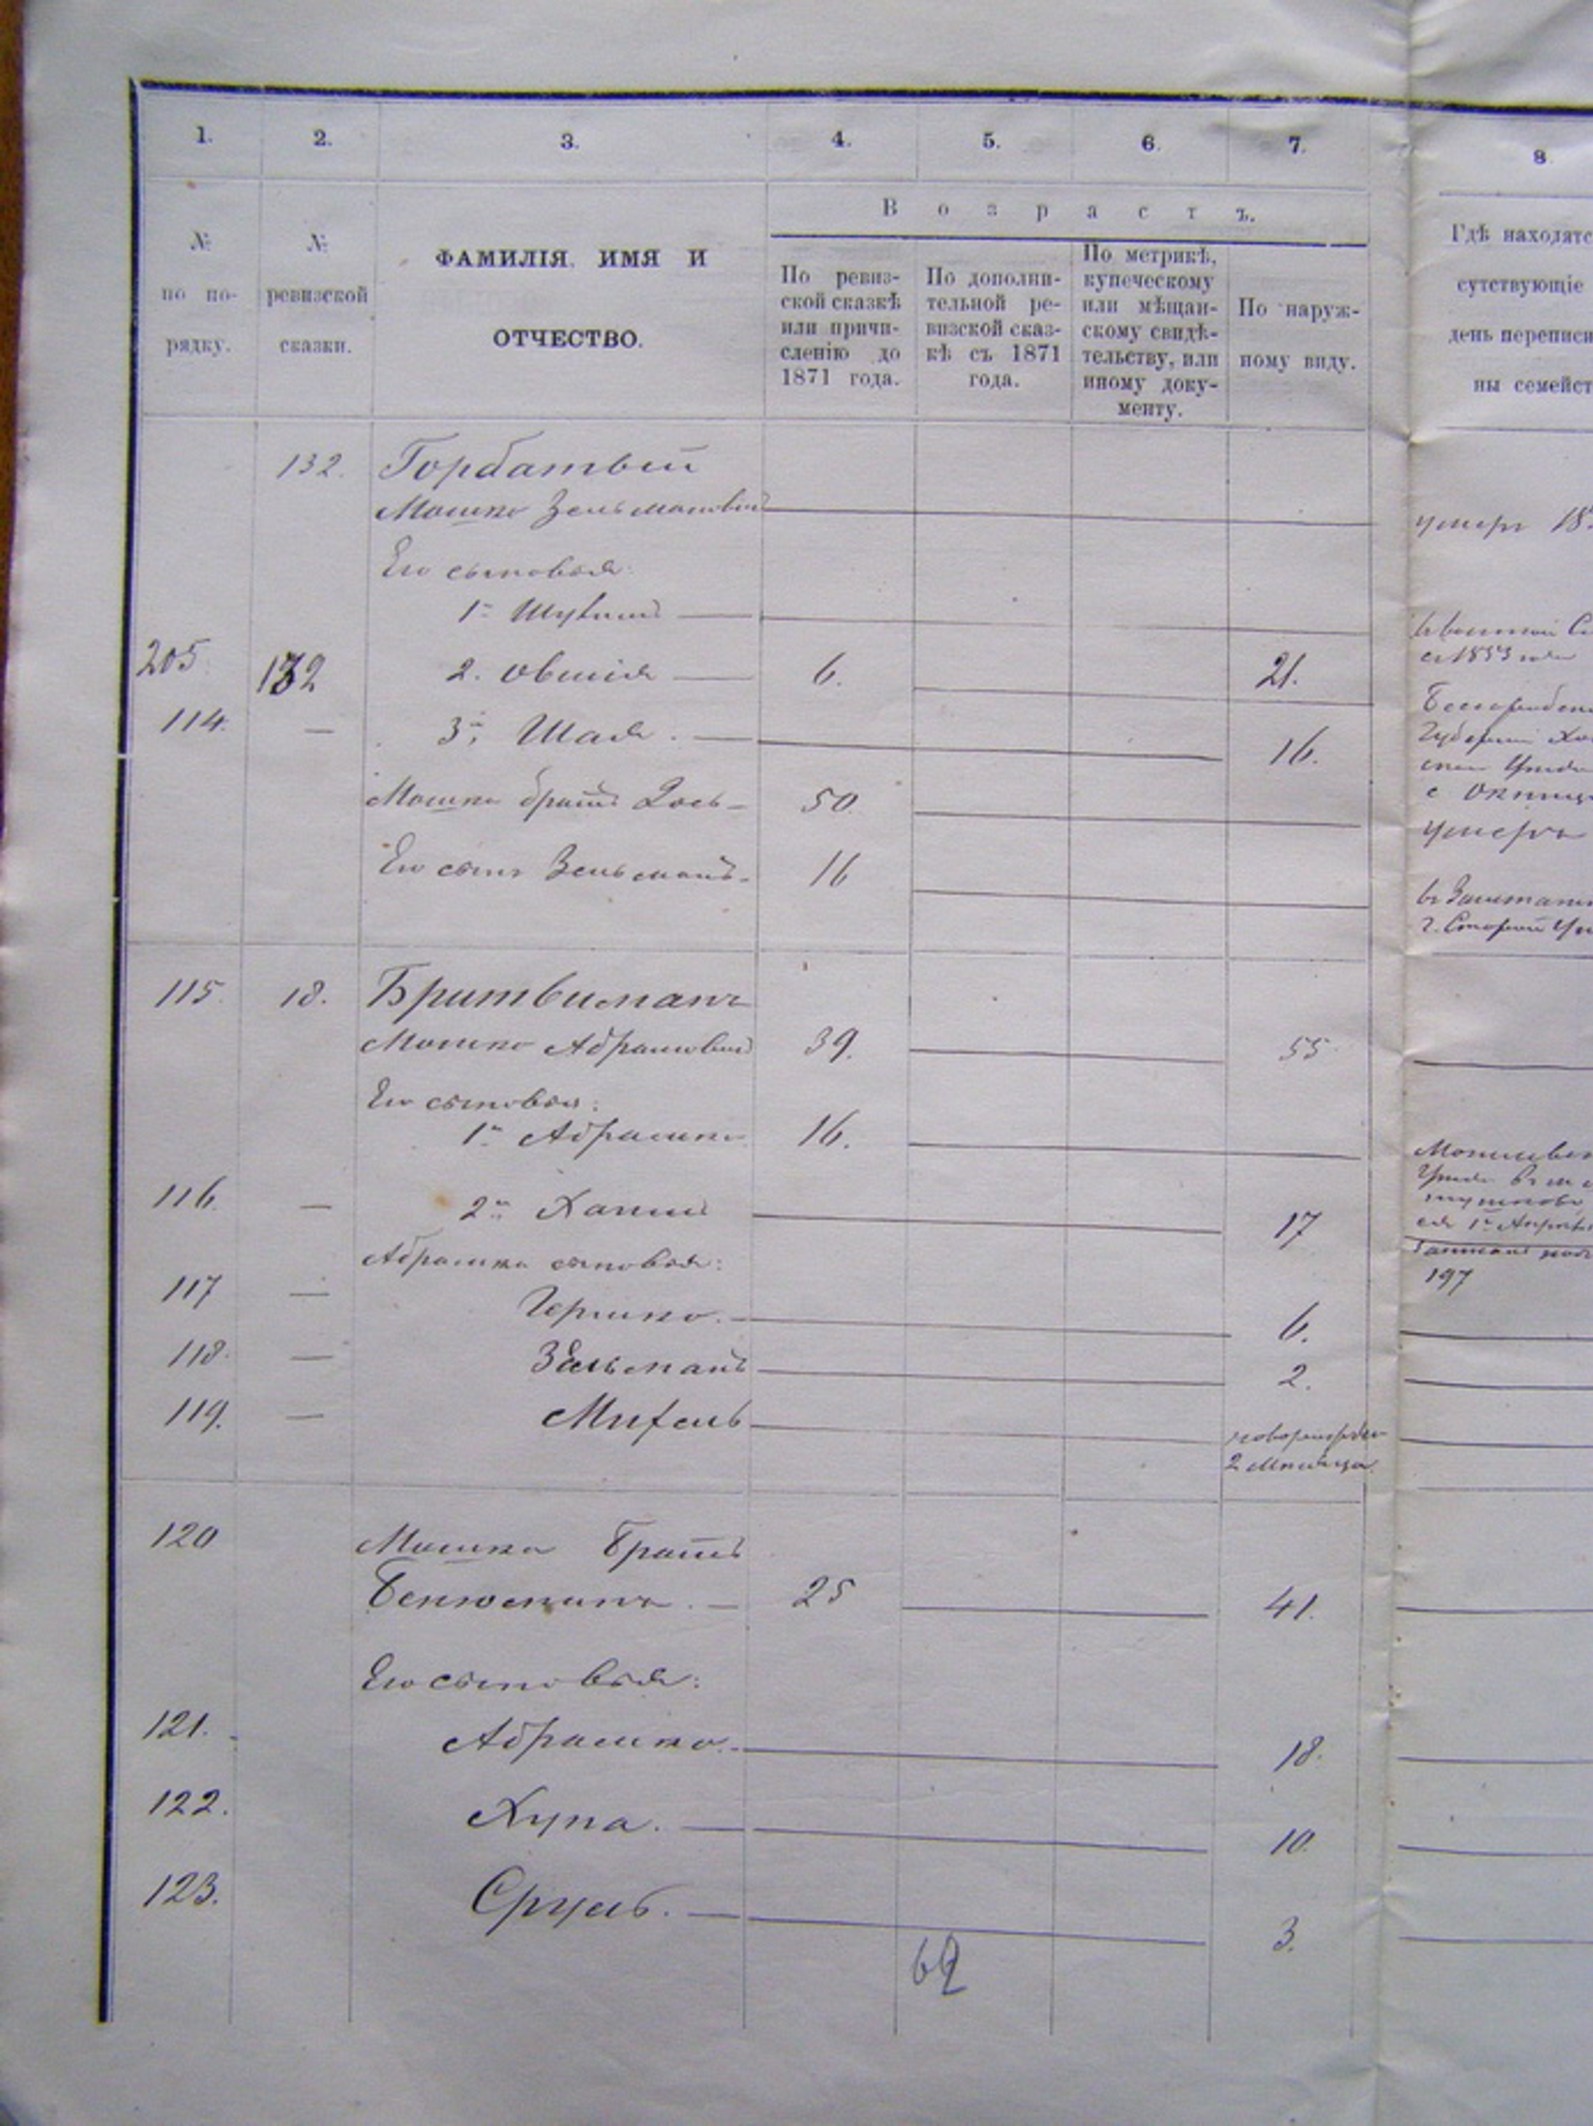 1. 2. 3. 4. 5. 6. 7. 8
Возрастъ.
№ по по-рядку.
№ ревизской сказки.
ФАМИЛІЯ, ИМЯ И
ОТЧЕСТВО.
По ревиз-
ской сказкѣ
или причи-
сленію до
1871 года.
По дополни-
тельной ре-
визской сказ-
кѣ съ 1871
года.
По метрикѣ,
купеческому
или мѣщан-
скому свидѣ-
тельству, или
иному доку-
менту.
По наруж-
ному виду.
Гдѣ находятс
сутствующіе
день переписи
ны семейст
132. Горбатый
Мошко Зельмановичъ
умеръ
Его сыновья:
1й
205 132 2. Овшія 6. 21.
с 1853 года
114. — 3й, Шая. 16.
Мошка братъ 50.
умеръ
Его сынъ Зельманъ 16
115. 18. Бритвиманъ
Мошко Абрамовичъ 39. 55
Его сыновья:
1й Абрамко 16.
116. — 2й 17
197
Абрамка сыновья:
117 — Гершко. 6.
118. — Зельманъ 2.
119. — Михель
2 мѣсяца
120 Мошка братъ
Беньюминъ. 25 41.
Его сыновья:
121. Абрамко. 18.
122. Хуна. 10.
123. Сруль. 3.
62